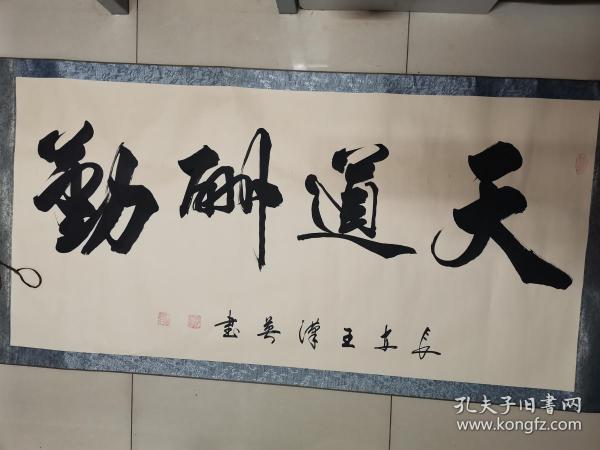 天道酬勤
长安王汉英书
孔夫子旧书网
www.kongfz.com